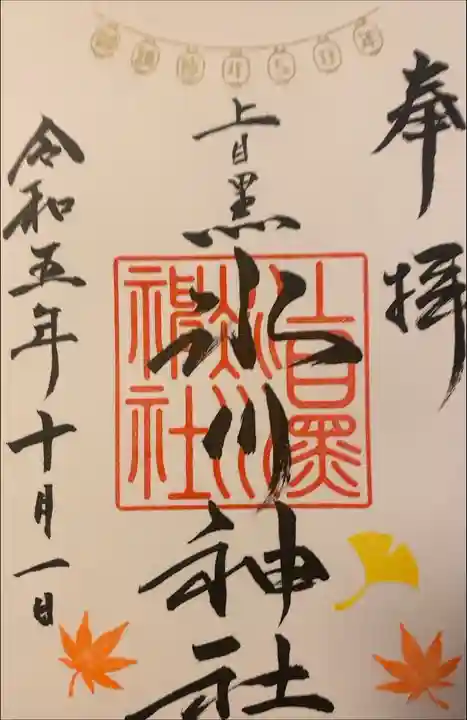 奉拝
上目黒
氷川神社
上目黒
氷川
神社
令和五年十月一日